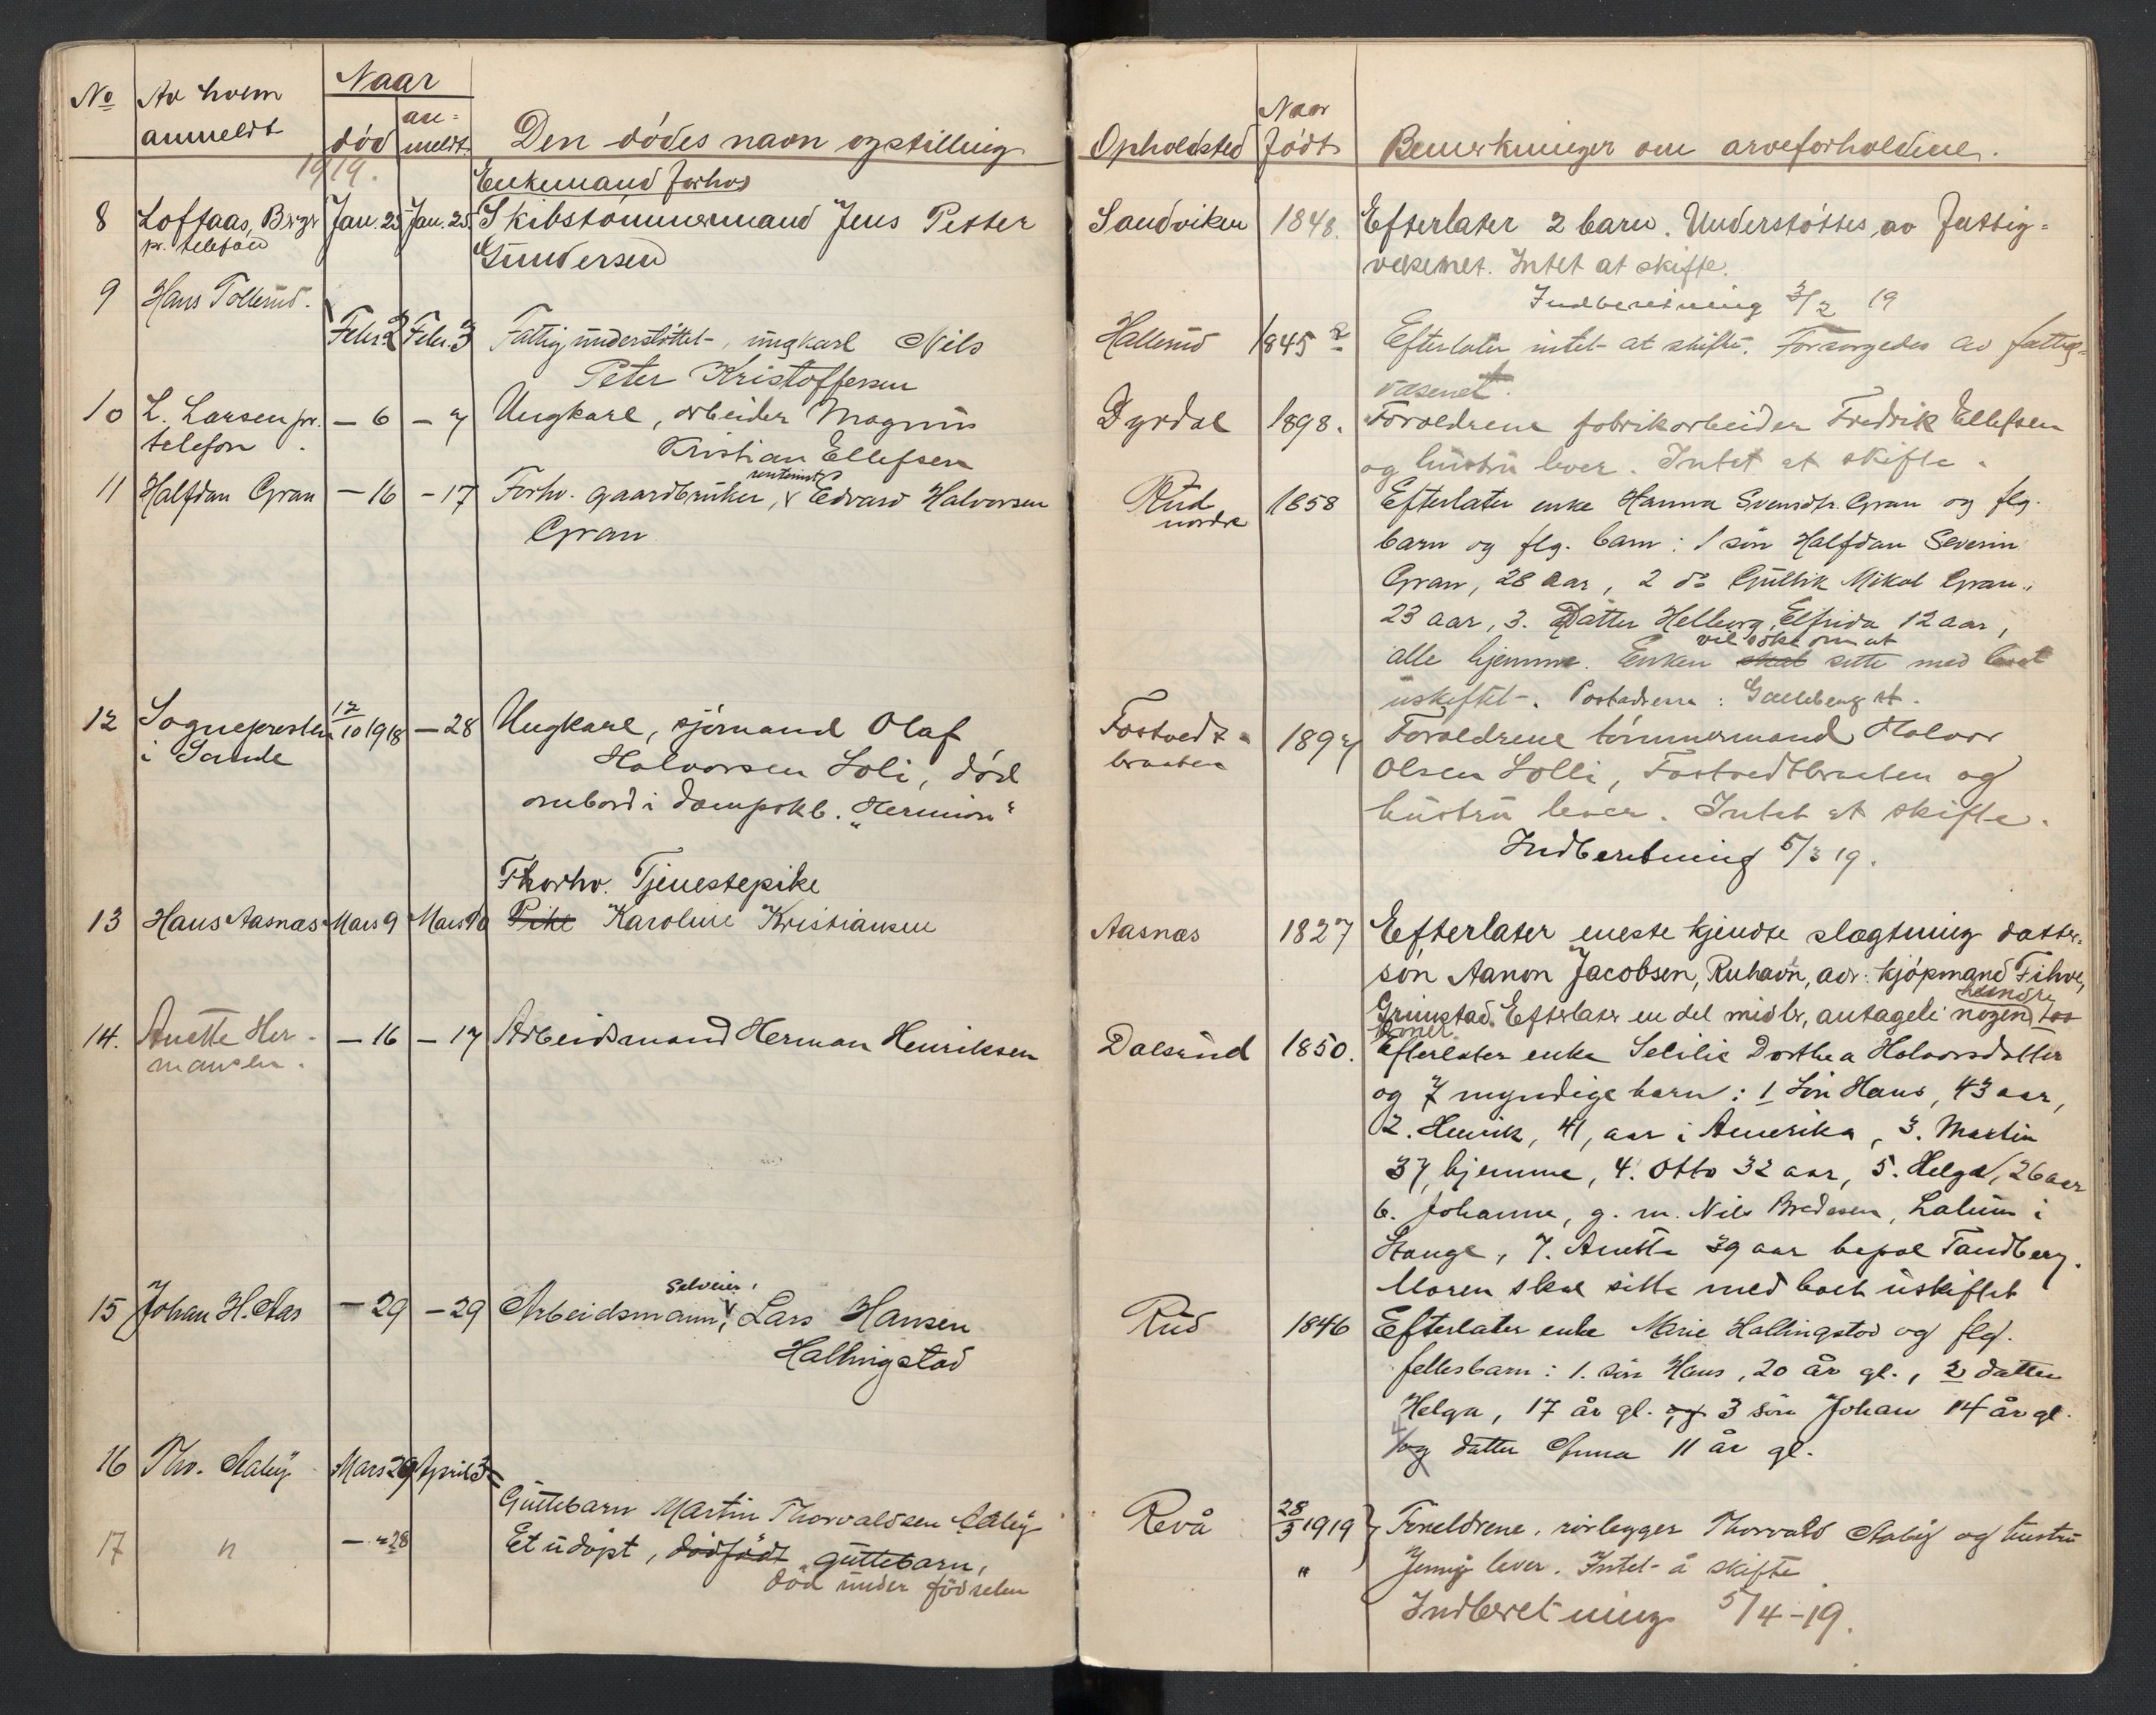 No Av hvem anmeldt Naar død an= meldt. Den dødes navn og stilling Opholdsted Naar født Bemerkninger om arveforholdene.
1919.
Enkemand forhv
8 Loftaas, Birger Jan. 25 Jan. 25. Skibstømmermand Jens Petter Sandviken 1848. Efterlater 2 barn. Understøttes av Fattig=
pr. telefon Gundersen væsenet. Intet at skifte.
Indberetning 3/2 19
9 Hans Tollerud.
Febr. 2 Febr. 3 Fattigunderstøttet, ungkarl Nils Hallerud 1845 Efterlater intet at skifte. Forsørgedes av fattig=
Peter Kristoffersen væsenet.
10 L. Larsen pr. — 6 — 7 Ungkarl, arbeider Magnus Dyrdal 1898. Forældrene fabrikarbeider Fredrik Ellefsen
telefon. Kristian Ellefsen og hustru lever. Intet at skifte.
rentenist
11 Halfdan Gran — 16 — 17 Forhv. gaardbruker, Edvard Halvorsen Rud 1858 Efterlater enke Hanna Svendsdtr. Gran og flg.
Gran nordre barn og flg. barn: 1 søn Halfdan Severin
Gran, 28 aar, 2 do Gullik Mikal Gran,
23 aar, 3. Datter Helborg Elfrida 12 aar,
vil søke om at
alle hjemme. Enken skal sitte med boet
uskiftet. Postadresse: Galleberg st.
12 Sognepresten 12/10 1918 — 28 Ungkarl, sjømand Olaf Fostvedt= 1897 Forældrene tømmermand Halvor
i Sande Halvorsen Soli, død braaten Olsen Solli, Fostvedtbraaten og
ombord i dampskb. „Hermion“ hustru lever. Intet at skifte.
Indberetning 5/3 19.
Fhorhv. Tjenestepike
13 Hans Aasnæs Mars 9 Mars 10 Pike Karoline Kristiansen Aasnæs 1827 Efterlater eneste kjendte slægtning datter=
søn Aanon Jacobsen, Ruhavn, adr. kjøpmand Fihve,
Grimstad. Efterlater en del midler, antagelig nogen hundre
kroner.
14. Anette Her= — 16 — 17 Arbeidsmand Herman Henriksen Dalsrud 1850. Efterlater enke Selilie Dorthea Halvorsdatter
mansen. og 7 myndige barn: 1 Søn Hans, 43 aar,
2. Henrik, 41, aar i Amerika, 3. Martin
37, hjemme, 4. Otto 32 aar, 5. Helga, 26 aar
6. Johanne, g. m. Nils Bredesen, Lalum i
Stange, 7. Anette 39 aar bepæl Tandberg.
Moren skal sitte med boet uskiftet
Selveier,
15 Johan H. Aas — 29 — 29 Arbeidsmann, Lars Hansen Rud 1846 Efterlater enke Marie Hallingstad og flg.
Hallingstad fellesbarn: 1. søn Hans, 20 år gl., 2 datter
Helga, 17 år gl. og 3 søn Johan 14 år gl.
4 og datter Anna 11 år gl.
16 Thv. Aaby Mars 29 April 3
Guttebarn Martin Thorvaldsen Aaby Revå 28/3 1919 Foreldrene, rørlegger Thorvald Aaby og hustru
17 " — " 28 Et udøpt, dødfødt guttebarn, " Jenny lever. Intet å skifte
død under fødselen
Indberetning 5/4-19.